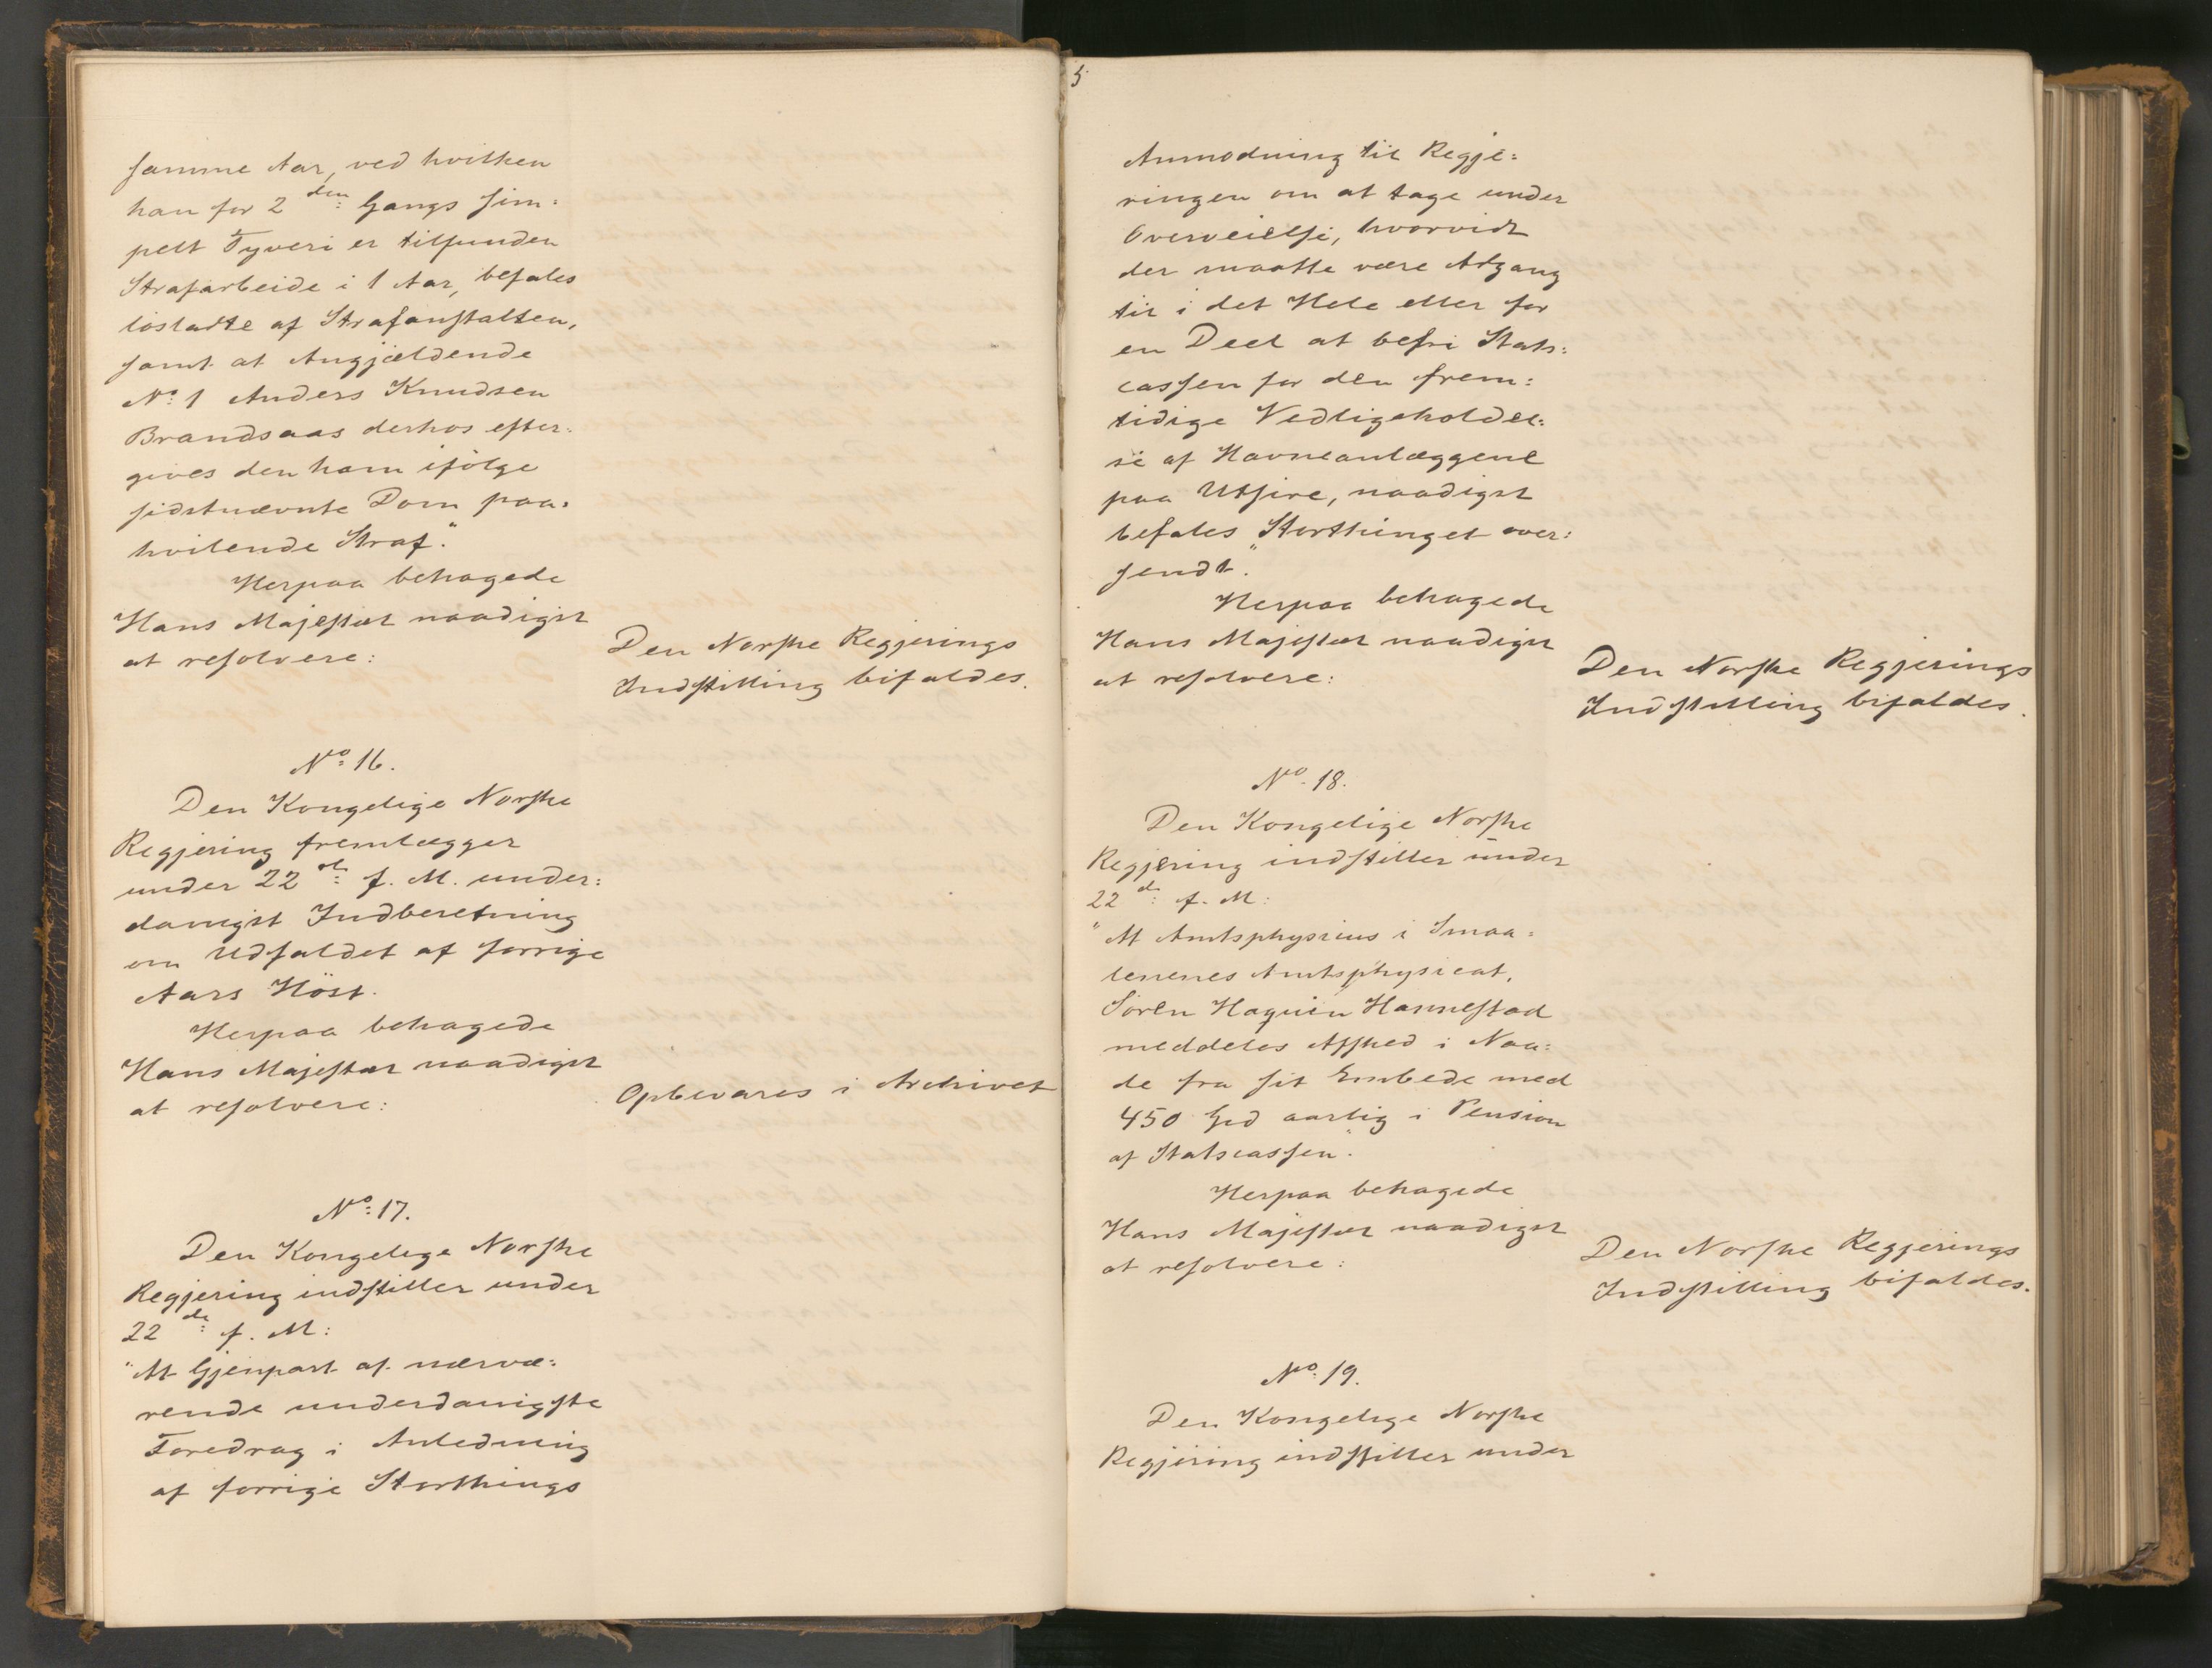 samme Aar, ved hvilken
han for 2den: Gangs sim:
pelt Tyveri er tilfunden
Strafarbeide i 1 Aar, befales
lösladte af Strafanstalten,
samt at Angjældende
No: 1 Anders Knudsen
Brandsaas derhos efter:
gives den ham ifölge
sidstnævnte Dom paa:
hvilende Straf."
Herpaa behagede
Hans Majestæt naadigst
at resolvere:
Den Norske Regjerings
Indstilling bifaldes.
No: 16.
Den Kongelige Norske
Regjering fremlægger
under 22de: f. M. under:
danigst Indberetning
om Udfaldet af forrige
Aars Höst.
Herpaa behagede
Hans Majestæt naadigst
at resolvere:
Opbevares i Archivet
No: 17.
Den Kongelige Norske
Regjering indstiller under
22de: f. M:
"At Gjenpart af nærvæ:
rende underdanigste
Foredrag i Anledning
af forrige Storthings
5
Anmodning til Regje:
ringen om at tage under
Overveielse, hvorvidt
der maatte være Adgang
til i det Hele eller for
en Deel at befri Stats:
cassen for den frem:
tidige Vedligeholdel:
se af Havneanlæggene
paa Utsire, naadigst
befales Storthinget over:
sendt."
Herpaa behagede
Hans Majestæt naadigst
at resolvere:
Den Norske Regjerings
Indstilling bifaldes.
No. 18.
Den Kongelige Norske
Regjering indstiller under
22de: f. M:
"At Amtsphysicus i Smaa:
lenenes Amtsphysicat,
Sören Haquin Hannestad
meddeles Afsked i Naa:
de fra sit Embede med
450 Spd aarlig i Pension
af Statscassen".
Herpaa behagede
Hans Majestæt naadigst
at resolvere:
Den Norske Regjerings
Indstilling bifaldes.
No: 19.
Den Kongelige Norske
Regjering indstiller under